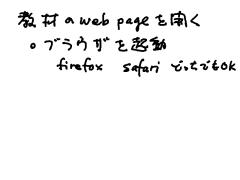 教材のweb pageを開く
。ブラウザを起動
firefox safari どっちでもOK